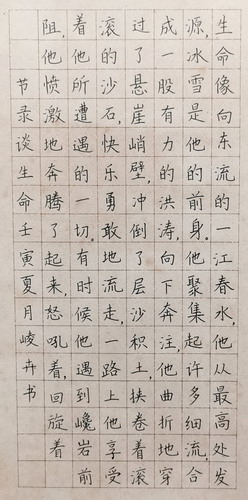 生命像向东流的一江春水,他从最高处发
源,冰雪是他的前身。他聚集起许多细流,合
成一股有力的洪涛,向下奔注,他曲折地穿
过了悬崖峭壁,冲倒了层沙积土,挟卷着滚
滚的沙石,快乐勇敢地流走,一路上他享受
着他所遭遇的一切。有时候他遇到巉岩前
阻,他愤激地奔腾了起来,怒吼着,回旋着
节录谈生命壬寅夏月崚卉书